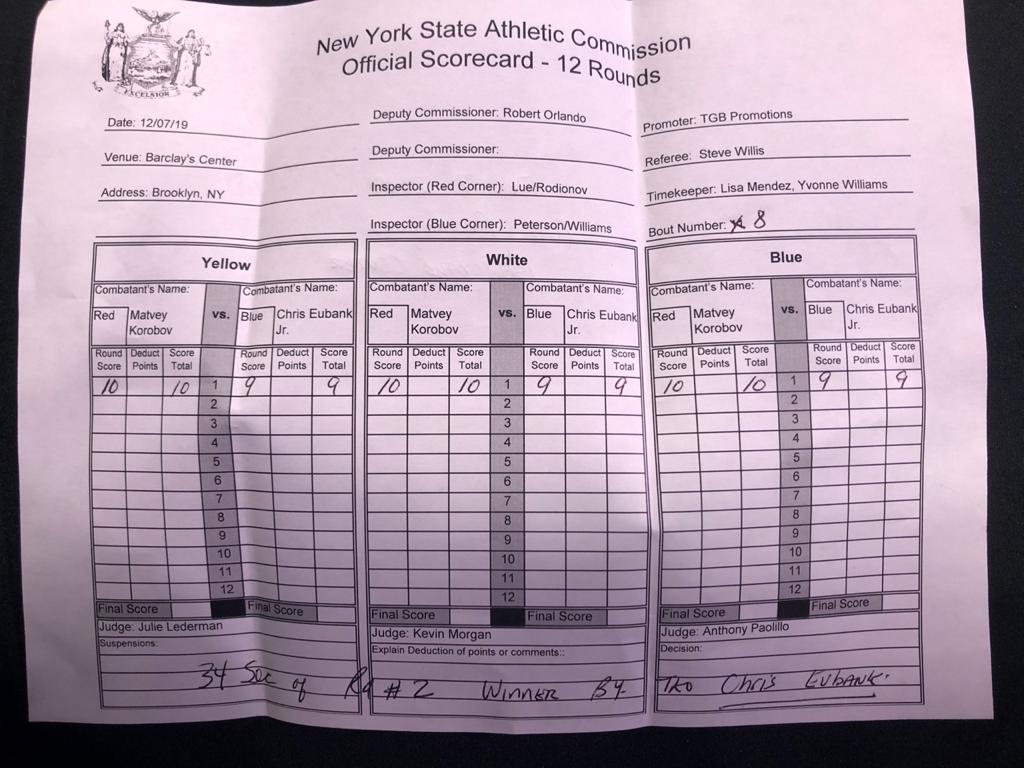 EXCELSIOR
New York State Athletic Commission
Official Scorecard - 12 Rounds
Date: 12/07/19
Venue: Barclay's Center
Address: Brooklyn, NY
Deputy Commissioner: Robert Orlando
Deputy Commissioner:
Inspector (Red Corner): Lue/Rodionov
Inspector (Blue Corner): Peterson/Williams
Promoter: TGB Promotions
Referee: Steve Willis
Timekeeper: Lisa Mendez, Yvonne Williams
Bout Number: 8
Yellow
Combatant's Name: Combatant's Name:
Red Matvey Korobov vs. Blue Chris Eubank Jr.
Round Score Deduct Points Score Total Round Score Deduct Points Score Total
10 10 1 9 9
2
3
4
5
6
7
8
9
10
11
12
Final Score Final Score
Judge: Julie Lederman
Suspensions:
White
Combatant's Name: Combatant's Name:
Red Matvey Korobov vs. Blue Chris Eubank Jr.
Round Score Deduct Points Score Total Round Score Deduct Points Score Total
10 10 1 9 9
2
3
4
5
6
7
8
9
10
11
12
Final Score Final Score
Judge: Kevin Morgan
Explain Deduction of points or comments::
Blue
Combatant's Name: Combatant's Name:
Red Matvey Korobov vs. Blue Chris Eubank Jr.
Round Score Deduct Points Score Total Round Score Deduct Points Score Total
10 10 1 9 9
2
3
4
5
6
7
8
9
10
11
12
Final Score Final Score
Judge: Anthony Paolillo
Decision:
34 Sec of Rd #2 WINNER BY TKO Chris EUBANK.